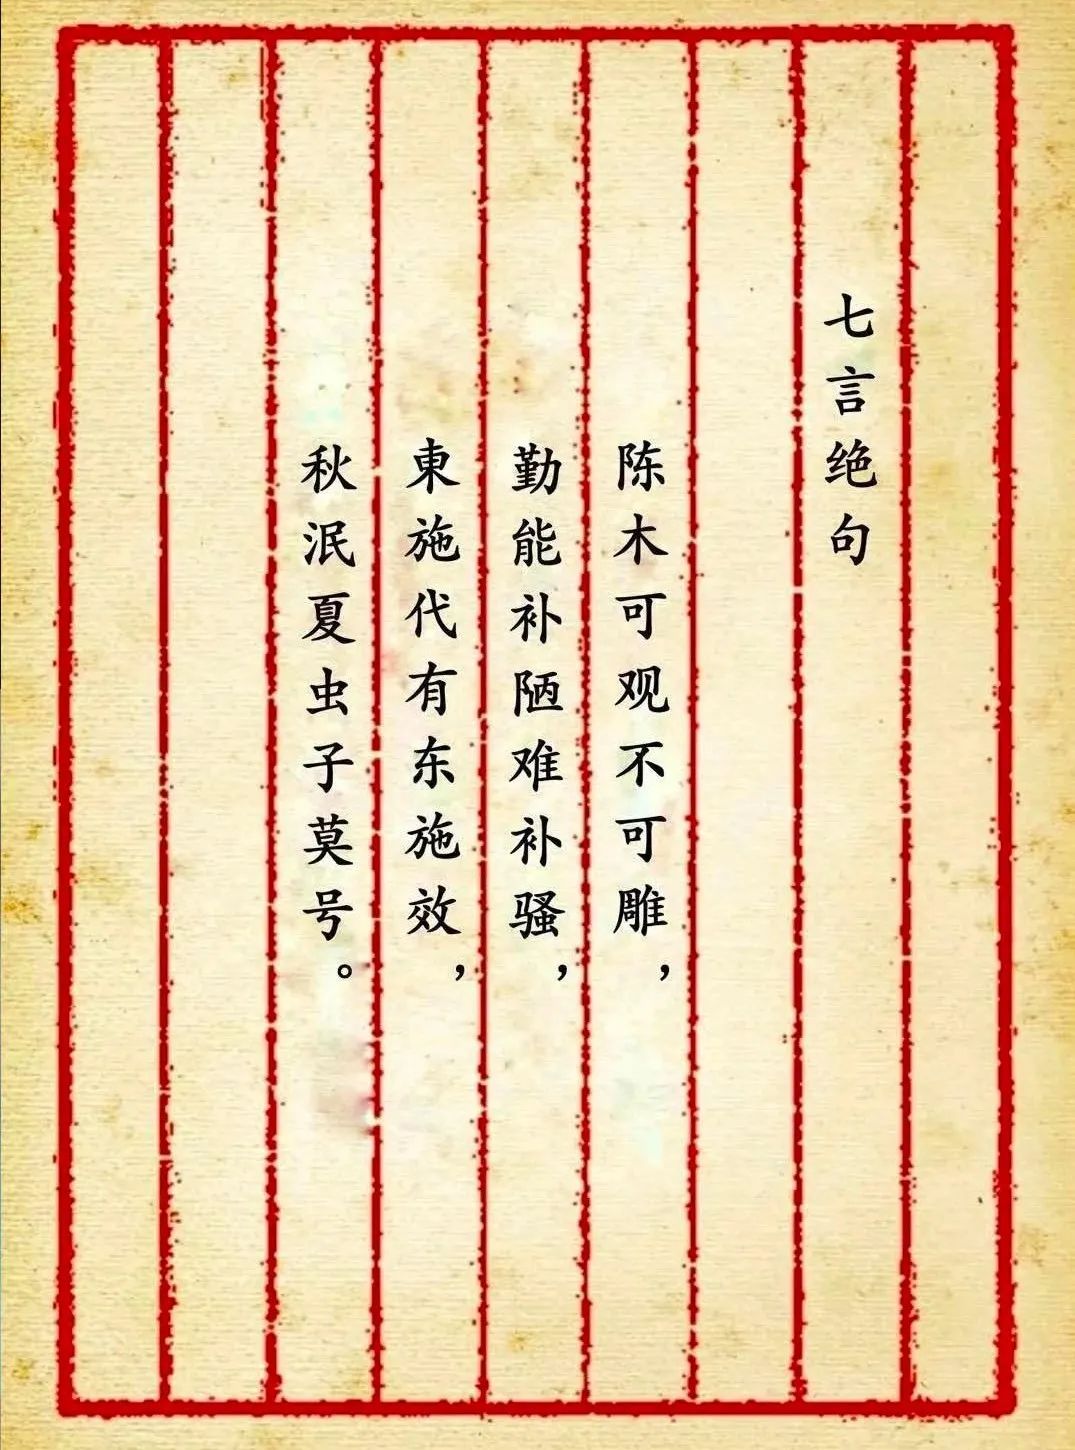 七言绝句
陈木可观不可雕，
勤能补陋难补骚，
東施代有东施效，
秋泯夏虫子莫号。